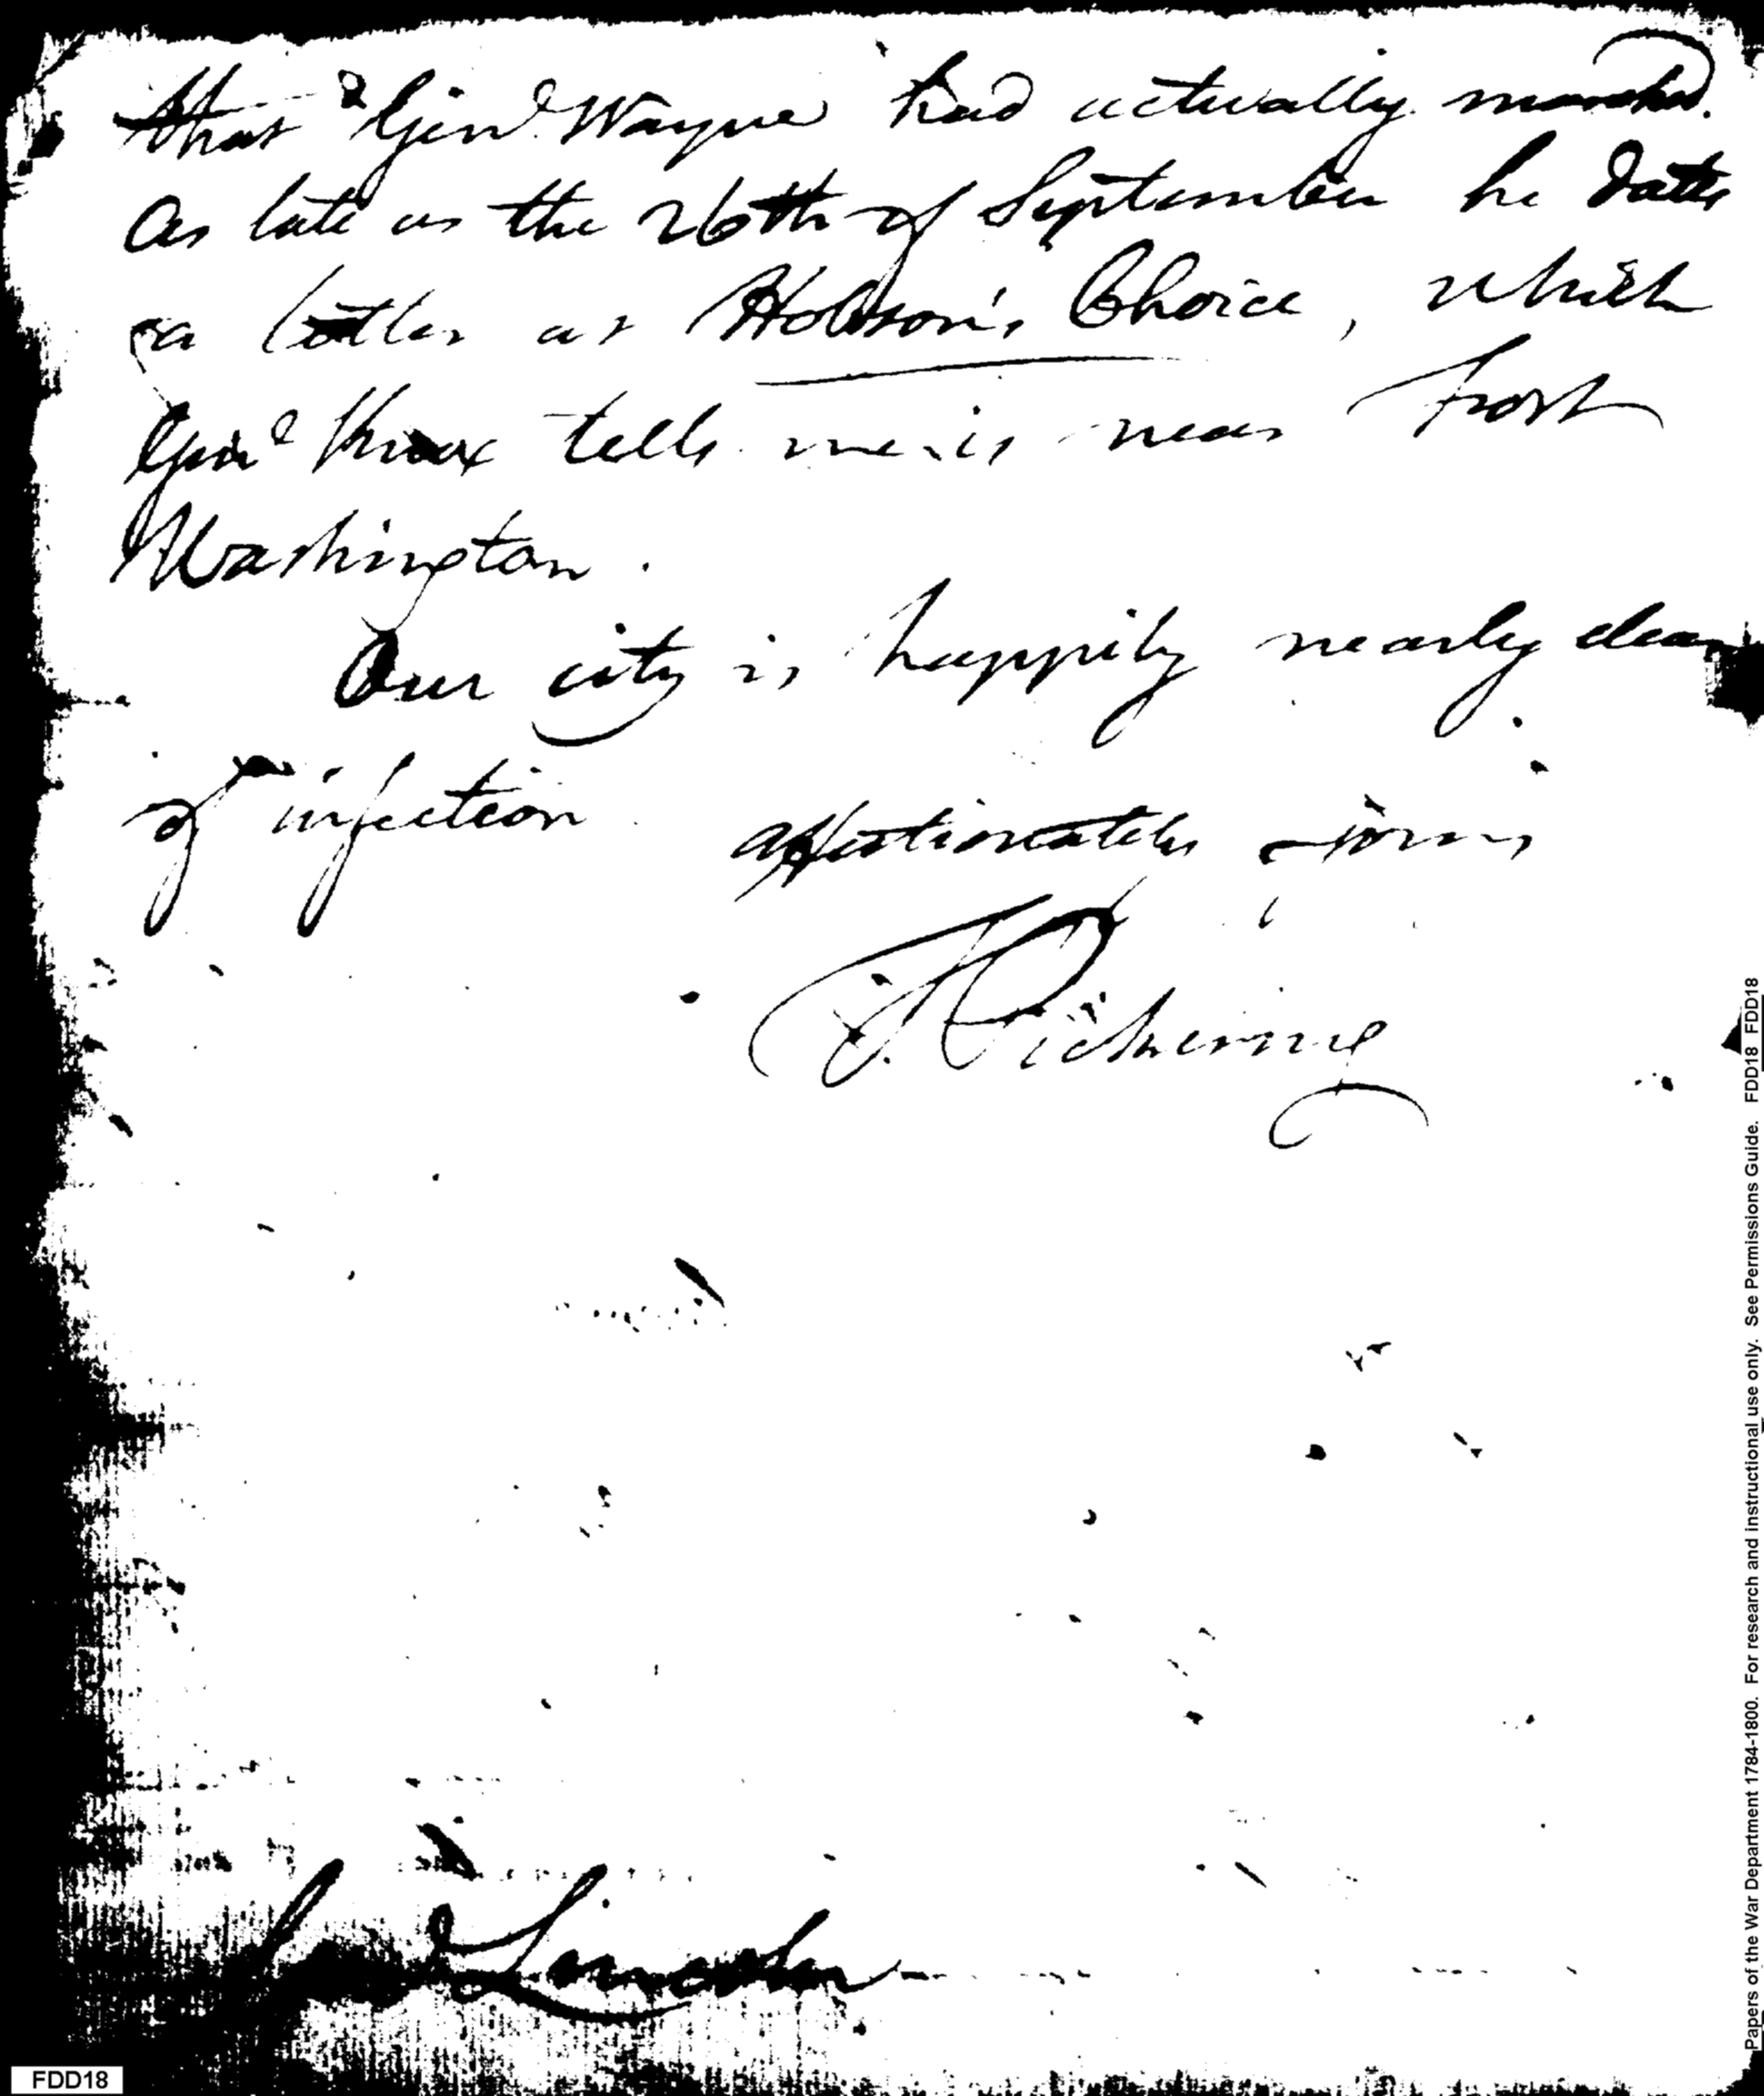 that Genl. Wayne had actually marched.
As late as the 26th of September he dates
a letter at Hobson's Choice, which
Genl Knox tells me is near Fort
Washington.
Our city is happily nearly clear
of infection.
affectionately yours
T. Pickering
Genl Lincoln
FDD18
Papers of the War Department 1784-1800. For research and instructional use only. See Permissions Guide. FDD18 - FDD18